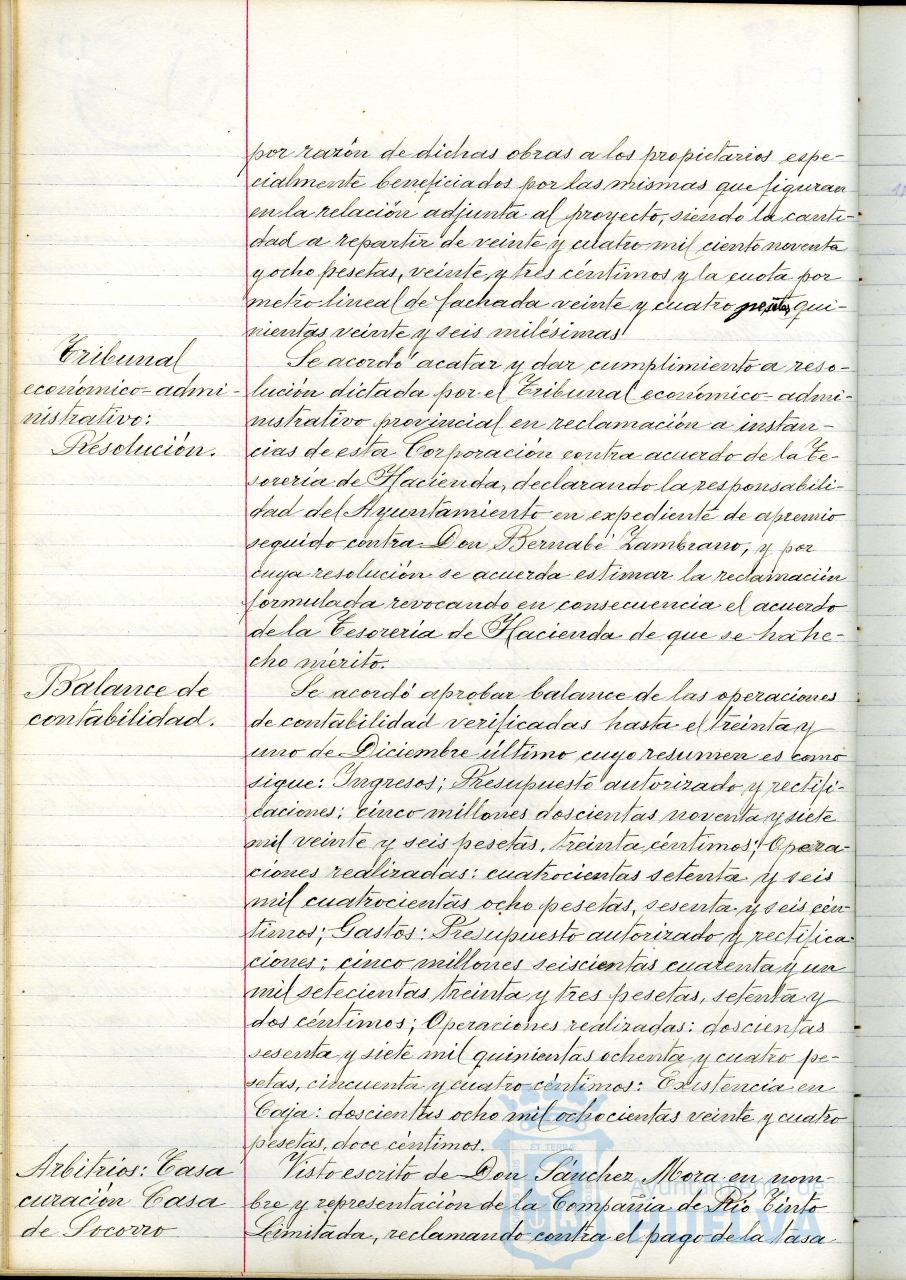 por razón de dichas obras a los propietarios espe-
cialmente beneficiados por las mismas que figuran
en la relación adjunta al proyecto, siendo la canti-
dad a repartir de veinte y cuatro mil ciento noventa
y ocho pesetas, veinte y tres céntimos y la cuota por
metro lineal de fachada veinte y cuatro pesetas qui-
nientas veinte y seis milésimas
Tribunal
económico-admi-
nistrativo:
Resolución.
Se acordó acatar y dar cumplimiento a reso-
lución dictada por el Tribunal económico-admi-
nistrativo provincial en reclamación a instan-
cias de esta Corporación contra acuerdo de la Te-
sorería de Hacienda, declarando la responsabili-
dad del Ayuntamiento en expediente de apremio
seguido contra Don Bernabé Zambrano, y por
cuya resolución se acuerda estimar la reclamación
formulada revocando en consecuencia el acuerdo
de la Tesorería de Hacienda de que se ha he-
cho mérito.
Balance de
contabilidad.
Se acordó aprobar balance de las operaciones
de contabilidad verificadas hasta el treinta y
uno de Diciembre último cuyo resumen es como
sigue: Ingresos; Presupuesto autorizado y rectifi-
caciones: cinco millones doscientas noventa y siete
mil veinte y seis pesetas, treinta céntimos; Opera-
ciones realizadas: cuatrocientas setenta y seis
mil cuatrocientas ocho pesetas, sesenta y seis cén-
timos; Gastos: Presupuesto autorizado y rectifica-
ciones: cinco millones seiscientas cuarenta y un
mil setecientas treinta y tres pesetas, setenta y
dos céntimos; Operaciones realizadas: doscientas
sesenta y siete mil quinientas ochenta y cuatro pe-
setas, cincuenta y cuatro céntimos: Existencia en
Caja: doscientas ocho mil ochocientas veinte y cuatro
pesetas, doce céntimos.
Arbitrios: Tasa
curación Casa
de Socorro
Visto escrito de Don Sánchez Mora en nom-
bre y representación de la Compañia de Rio Tinto
Limitada, reclamando contra el pago de la tasa
ET TERRÆ
Ayuntamiento de
HUELVA